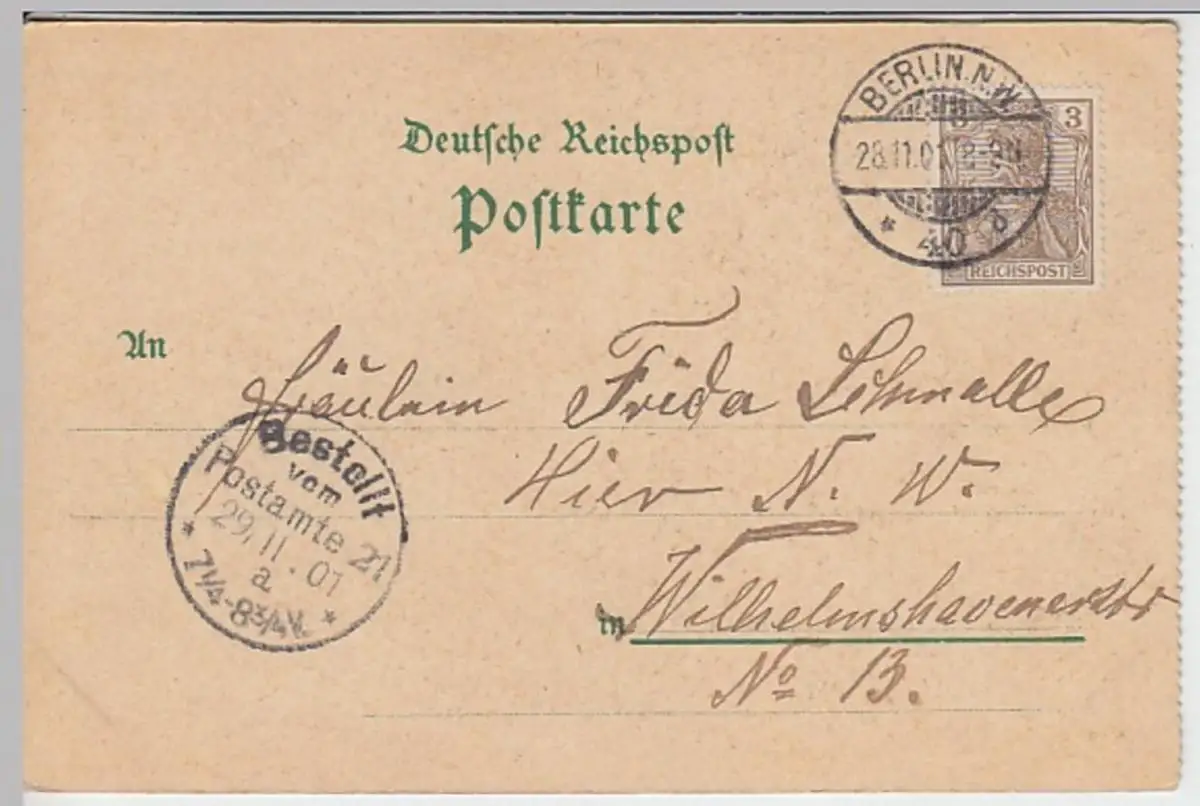 Deutsche Reichspost
Postkarte
BERLIN.N.W.
28.11.01 8-9N
* 40 d
3
REICHSPOST
An
Fräulein Frida Schmalle
Hier N. W.
in Wilhelmshavenerstr
No 13.
Bestellt
vom
Postamte 21
29.11.01
a
* 7 1/4-8 3/4V. *